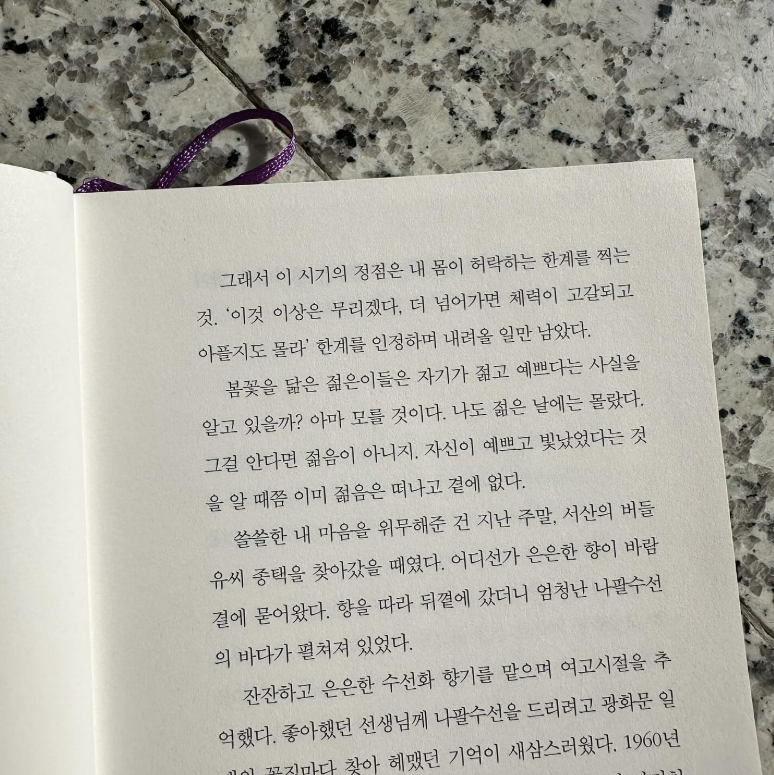 그래서 이 시기의 정점은 내 몸이 허락하는 한계를 찍는
것. ‘이것 이상은 무리겠다, 더 넘어가면 체력이 고갈되고
아플지도 몰라’ 한계를 인정하며 내려올 일만 남았다.
봄꽃을 닮은 젊은이들은 자기가 젊고 예쁘다는 사실을
알고 있을까? 아마 모를 것이다. 나도 젊은 날에는 몰랐다.
그걸 안다면 젊음이 아니지. 자신이 예쁘고 빛났었다는 것
을 알 때쯤 이미 젊음은 떠나고 곁에 없다.
쓸쓸한 내 마음을 위무해준 건 지난 주말, 서산의 버들
유씨 종택을 찾아갔을 때였다. 어디선가 은은한 향이 바람
결에 묻어왔다. 향을 따라 뒤꼍에 갔더니 엄청난 나팔수선
의 바다가 펼쳐져 있었다.
잔잔하고 은은한 수선화 향기를 맡으며 여고시절을 추
억했다. 좋아했던 선생님께 나팔수선을 드리려고 광화문 일
꽃집마다 찾아 헤맸던 기억이 새삼스러웠다. 1960년